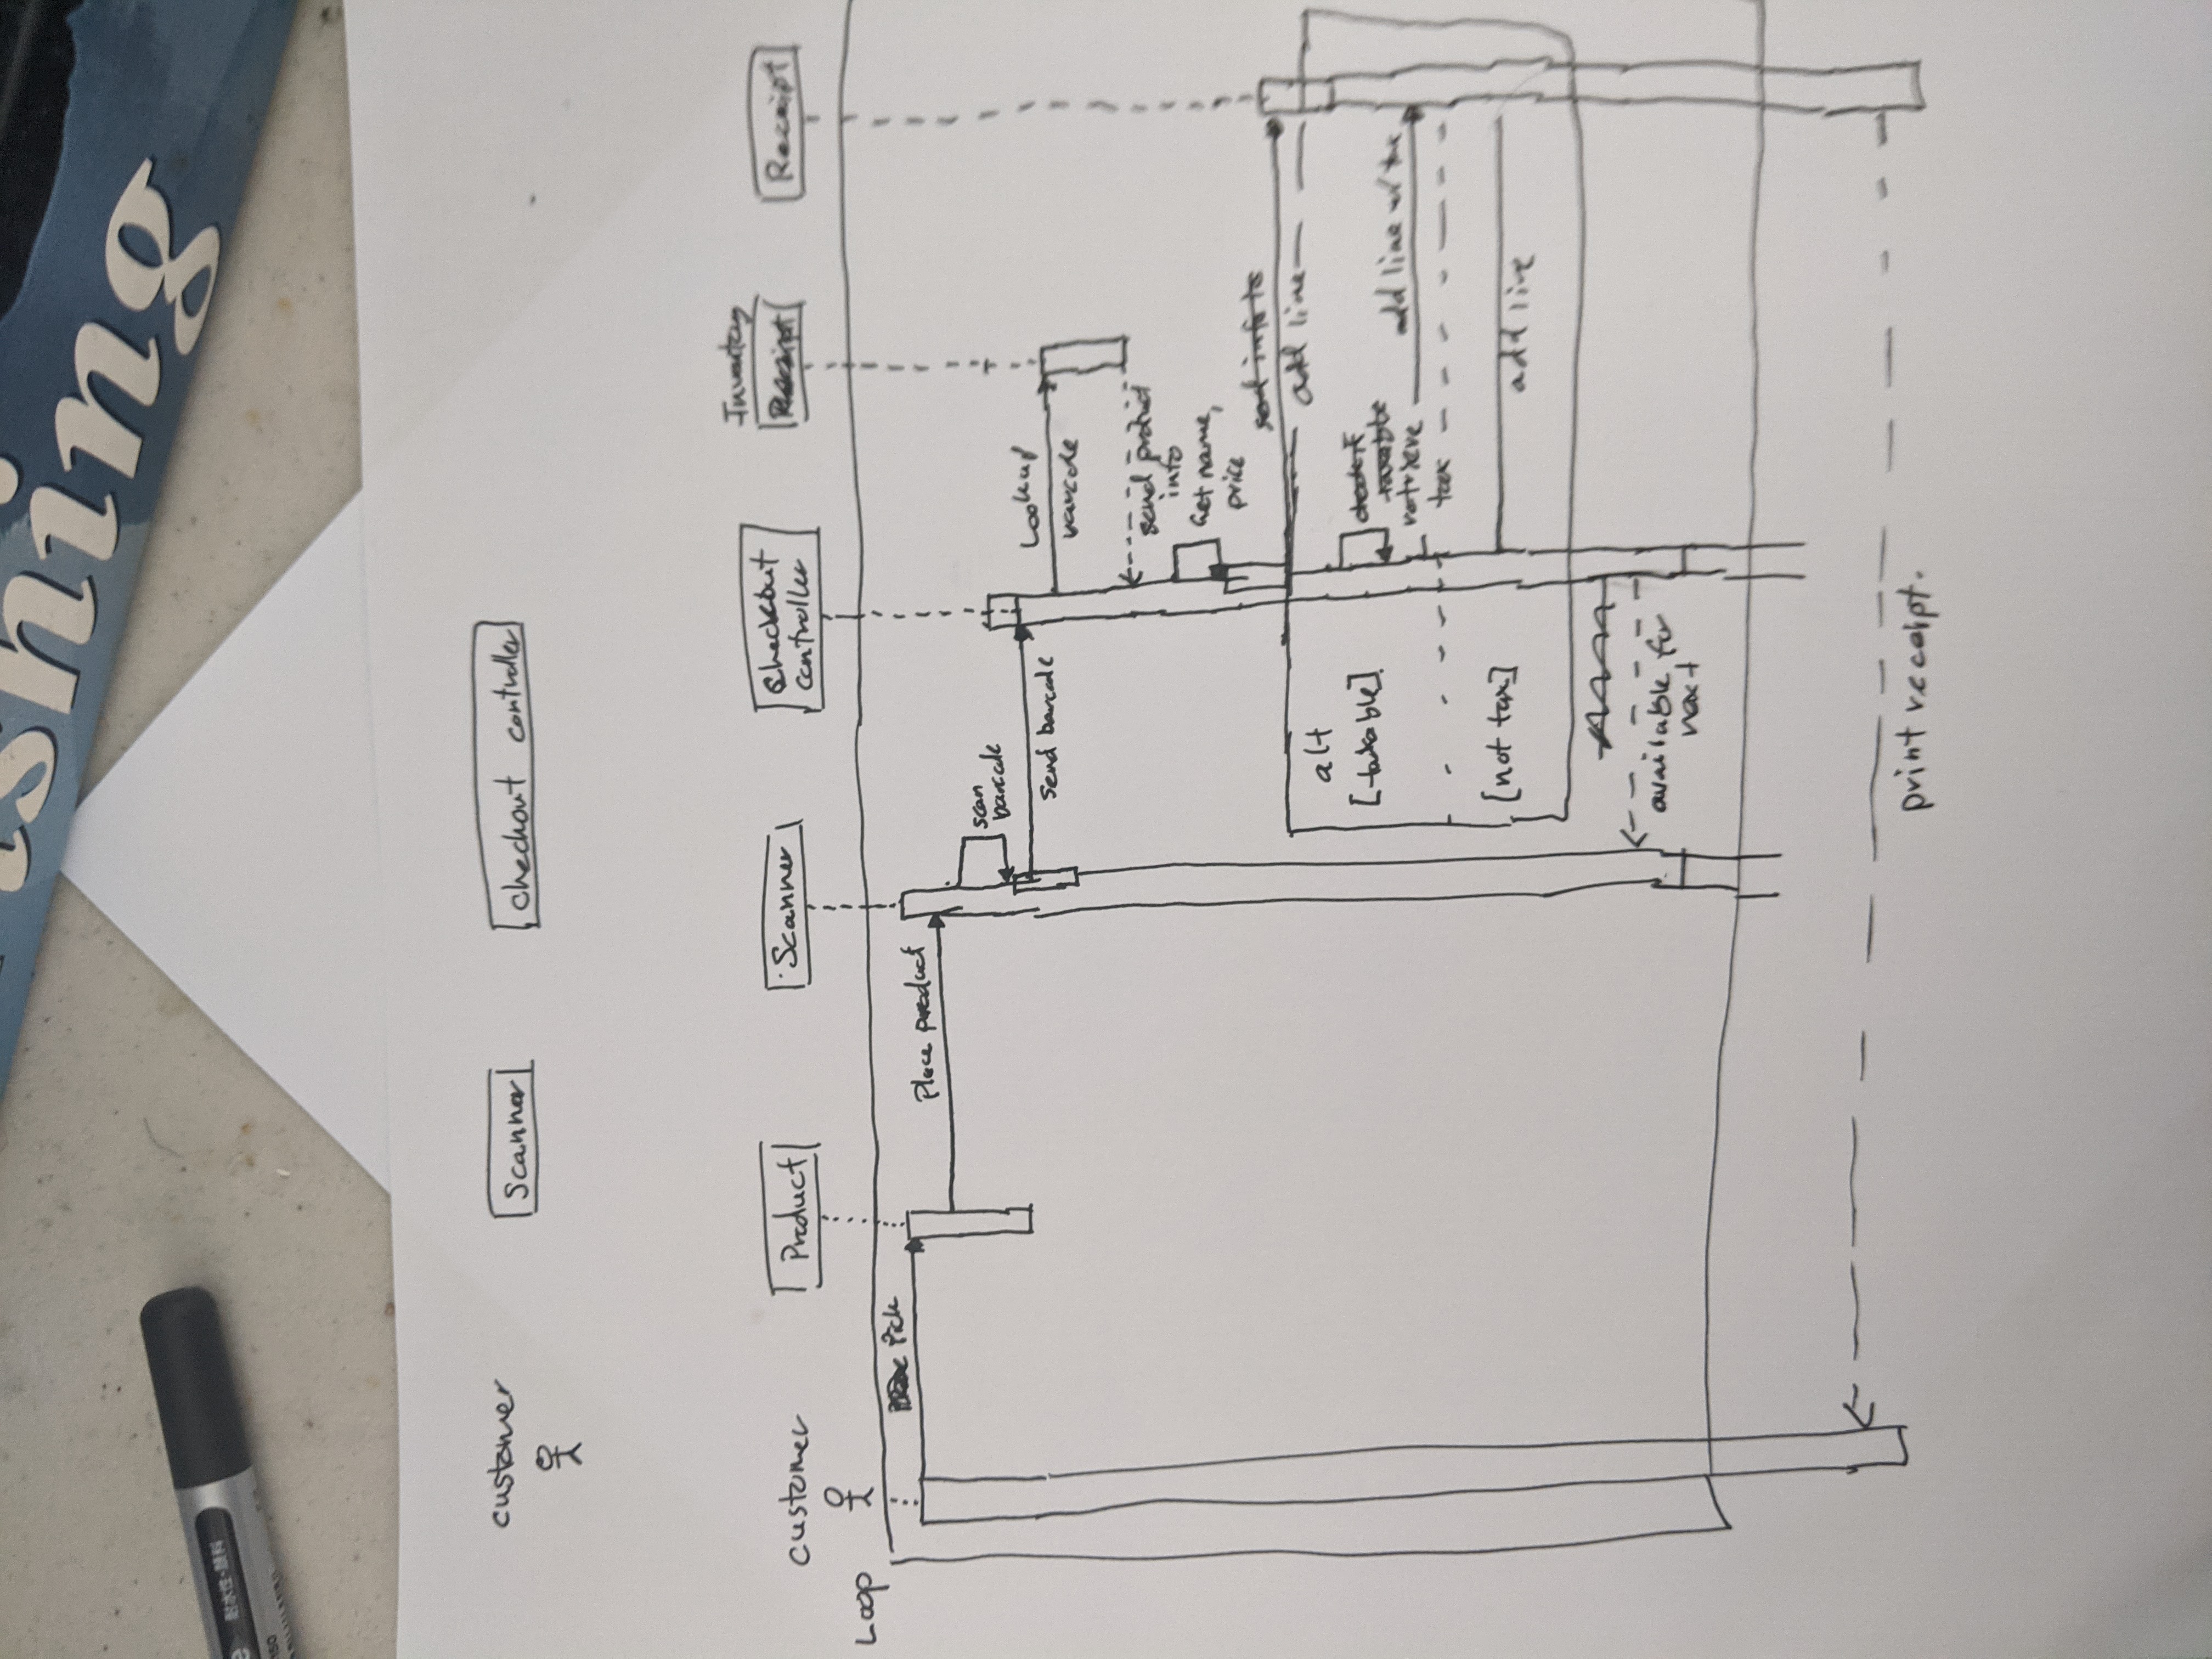 ishing
耐水性・顔料
customer
Scanner
checkout controller
Inventory
customer
Product
Scanner
Checkout
controller
Receipt
Receipt
Loop
Pick
Place product
scan
barcode
send barcode
Lookup
varcode
send product
info
Get name,
price
send info to
add line
alt
[taxable]
check if
taxable
retrieve
tax
add line w/ tax
[not tax]
add line
available for
next
print receipt.